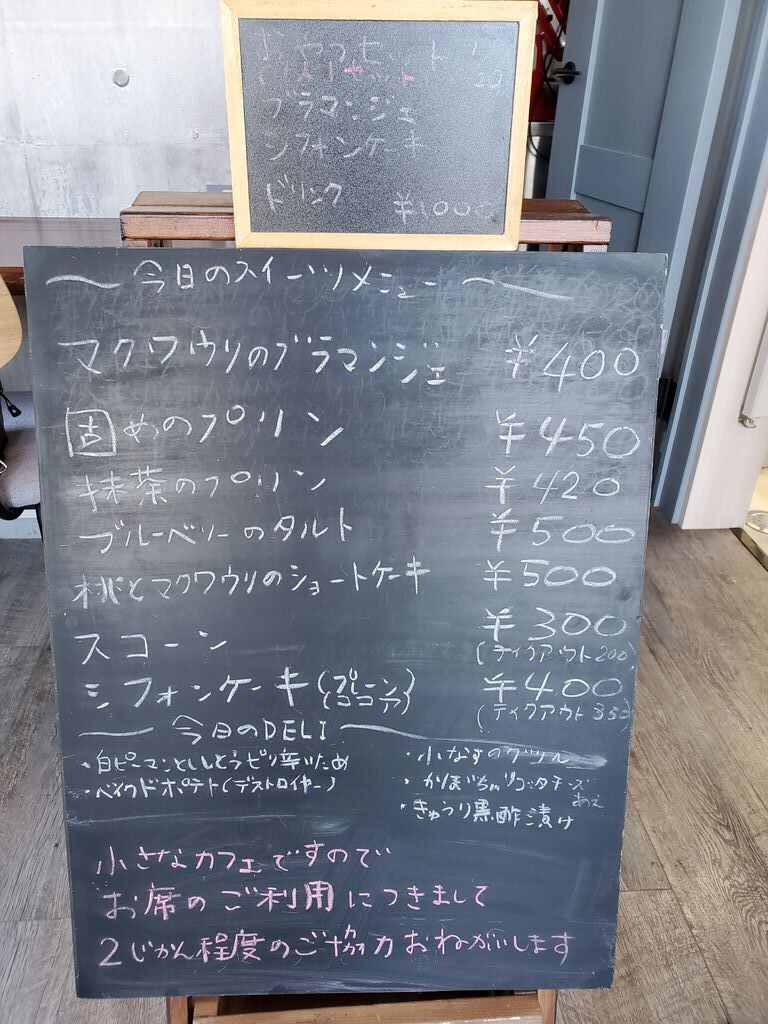 ブラマンジェ
シフォンケーキ
ドリンク ¥1000
〜 今日のスイーツメニュー 〜
マクワウリのブラマンジェ ¥400
固めのプリン ¥450
抹茶のプリン ¥420
ブルーベリーのタルト ¥500
桃とマクワウリのショートケーキ ¥500
スコーン ¥300
(テイクアウト200)
シフォンケーキ(プレーン ココア) ¥400
(テイクアウト350)
〜 今日のDELI 〜
・白ピーマンとししとうピリ辛いため
・ベイクドポテト(デストロイヤー)
・小なすのグリル
・かぼちゃリコッタチーズあえ
・きゅうり黒酢漬け
小さなカフェですので
お席のご利用につきまして
2じかん程度のご協力おねがいします